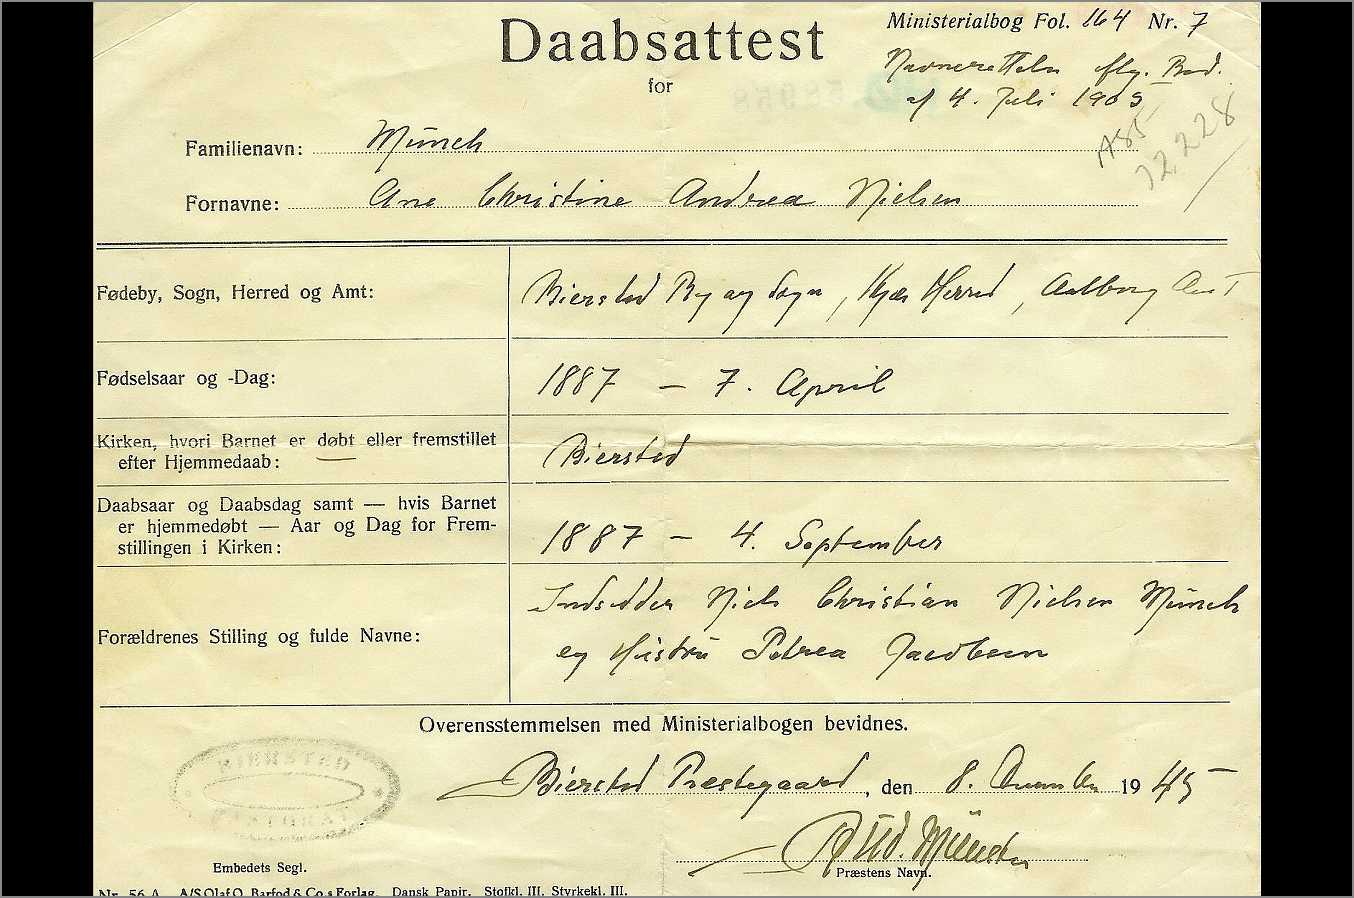 Daabsattest
for
Ministerialbog Fol. 164 Nr. 7
af 4. Juli 1905
A85
12,228
Familienavn: Münch
Fornavne: Ane Christine Andrea Nielsen
Fødeby, Sogn, Herred og Amt: Biersted By og Sogn, Kjær Herred, Aalborg Amt
Fødselsaar og -Dag: 1887 – 7. April
Kirken, hvori Barnet er døbt eller fremstillet
efter Hjemmedaab: Biersted
Daabsaar og Daabsdag samt — hvis Barnet
er hjemmedøbt — Aar og Dag for Frem-
stillingen i Kirken: 1887 – 4. September
Forældrenes Stilling og fulde Navne: Indsidder Niels Christian Nielsen Münch
og Hustru Petrea Jacobsen
Overensstemmelsen med Ministerialbogen bevidnes.
Biersted Præstegaard, den 8. December 1945
BIERSTED
PASTORAT
Embedets Segl.
Præstens Navn.
Nr. 56 A. A/S Olaf O. Barfod & Co.s Forlag. Dansk Papir. Stofkl. III. Styrkekl. III.